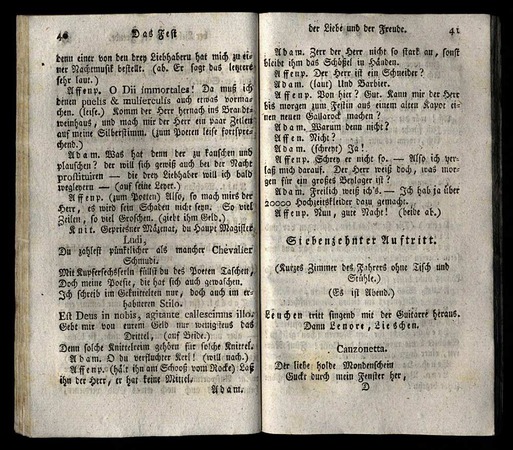 40 Das Fest
denn einer von den drey Liebhabern hat mich zu ei-
ner Nachtmusik bestellt. (ab. Er sagt das letztere
sehr laut.)
Affenp. O Dii immortales! Da muß ich
denen puelis & mulierculis auch etwas vorma-
chen. (leise.) Komm der Herr hernach ins Brandt-
weinhaus, und mach mir der Herr ein paar Zeilen
auf meine Silberstimm. (zum Poeten leise fortspre-
chend.)
Adam. Was hat denn der zu lauschen und
plauschen? der will sich gewiß auch bey der Nacht
prostituiren — die drey Liebhaber will ich bald
wegleyern — (auf seine Leyer.)
Affenp. (zum Poeten) Also, so mach mirs der
Herr, es wird sein Schaden nicht seyn. So viel
Zeilen, so viel Groschen. (giebt ihm Geld.)
Knit. Gepriesner Mäzenat, du Haupt Magister
Ludi,
Du zahlest pünktlicher als mancher Chevalier
Schmudi.
Mit Kupfersechserln füllst du des Poeten Taschen,
Doch meine Poesie, die hat sich auch gewaschen.
Ich schreib im Geknittelten nur, doch auch im er-
habneren Stilo.
Est Deus in nobis, agitante callescimus illo.
Gebt mir von eurem Geld nur wenigstens das
Drittel, (auf Beide.)
Denn solche Knittelreim gehören für solche Knittel.
Adam. O du verfluchter Kerl! (will nach.)
Affenp. (hält ihn am Schooß vom Rocke) Laß
ihn der Herr, er hat keine Mittel.
Adam.
der Liebe und der Freude. 41
Adam. Zerr der Herr nicht so stark an, sonst
bleibt ihm das Schößel in Händen.
Affenp. Der Herr ist ein Schneider?
Adam. (laut) Und Barbier.
Affenp. Von hier? Gut. Kann mir der Herr
bis morgen zum Festin aus einem alten Kapot ei-
nen neuen Gallarock machen?
Adam. Warum denn nicht?
Affen. Nicht?
Adam. (schreyt) Ja!
Affenp. Schrey er nicht so. — Also ich ver-
laß mich darauf. Der Herr weiß doch, was mor-
gen für ein großes Beylager ist?
Adam. Freilich weiß ich's. — Ich hab ja über
20000 Hochzeitskleider dazu gemacht.
Affenp. Nun, gute Nacht! (beide ab.)
Siebenzehnter Auftritt.
(Kurzes Zimmer des Fahrers ohne Tisch und
Stühle.)
(Es ist Abend.)
Leuchen tritt singend mit der Guitarre heraus.
Dann Lenore, Lieschen.
Canzonetta.
Der liebe holde Mondenschein
Guckt durch mein Fenster her,
D